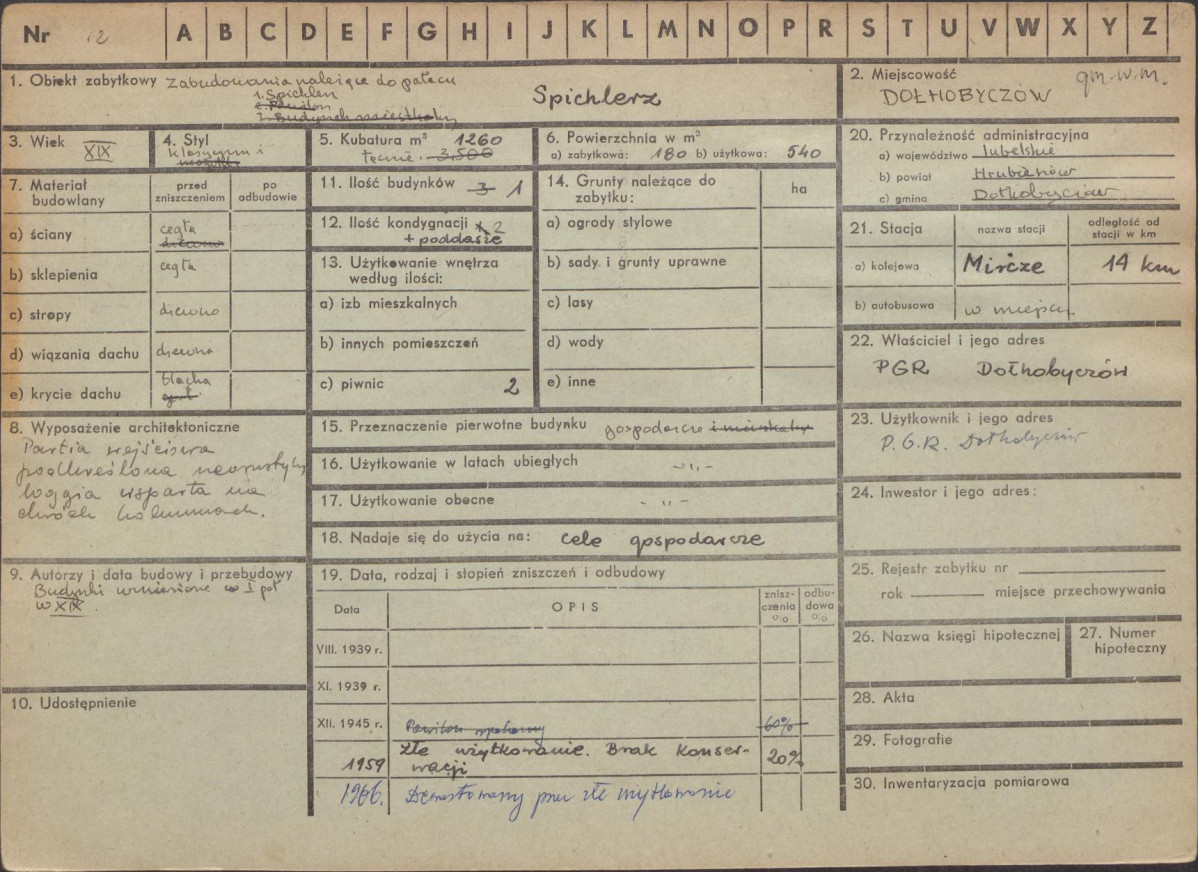 Nr 12 A B C D E F G H I J K L M N O P R S T U V W X Y Z
1. Obiekt zabytkowy Zabudowania należące do pałacu
1. Spichlerz
2. Pawilon
3. Budynek mieszkalny
Spichlerz
2. Miejscowość gm. w m.
DOŁHOBYCZÓW
3. Wiek XIX
4. Styl
klasycyzm i
5. Kubatura m³ 1260
łącznie 3.500
6. Powierzchnia w m²
a) zabytkowa: 180 b) użytkowa: 540
20. Przynależność administracyjna
a) województwo lubelskie
b) powiat Hrubieszów
c) gmina Dołhobyczów
7. Materiał budowlany
przed zniszczeniem
po odbudowie
a) ściany cegła
drewno
b) sklepienia cegła
c) stropy drewno
d) wiązania dachu drewno
e) krycie dachu blacha
gont
11. Ilość budynków 3 1
12. Ilość kondygnacji 2
+ poddasze
13. Użytkowanie wnętrza
według ilości:
a) izb mieszkalnych
b) innych pomieszczeń
c) piwnic 2
14. Grunty należące do
zabytku:
ha
a) ogrody stylowe
b) sady i grunty uprawne
c) lasy
d) wody
e) inne
21. Stacja
nazwa stacji
odległość od
stacji w km
a) kolejowa Mircze 14 km
b) autobusowa w miejscu
22. Właściciel i jego adres
PGR Dołhobyczów
8. Wyposażenie architektoniczne
Partia wejściowa
podkreślona
loggia wsparta na
dwóch kolumnach.
15. Przeznaczenie pierwotne budynku gospodarcze i mieszkalne
16. Użytkowanie w latach ubiegłych -„-
17. Użytkowanie obecne -„-
18. Nadaje się do użycia na: cele gospodarcze
23. Użytkownik i jego adres
P.G.R. Dołhobyczów
24. Inwestor i jego adres:
9. Autorzy i data budowy i przebudowy
Budynki wzniesione w I poł
w XIX.
10. Udostępnienie
19. Data, rodzaj i stopień zniszczeń i odbudowy
Data
OPIS
znisz-
czenia
o/o
odbu-
dowa
o/o
VIII. 1939 r.
XI. 1939 r.
XII. 1945 r. Pawilon 60%
1959 Złe użytkowanie. Brak konser-
wacji 20%
1966. Dewastowany przez złe użytkowanie
25. Rejestr zabytku nr
rok miejsce przechowywania
26. Nazwa księgi hipotecznej
27. Numer
hipoteczny
28. Akta
29. Fotografie
30. Inwentaryzacja pomiarowa